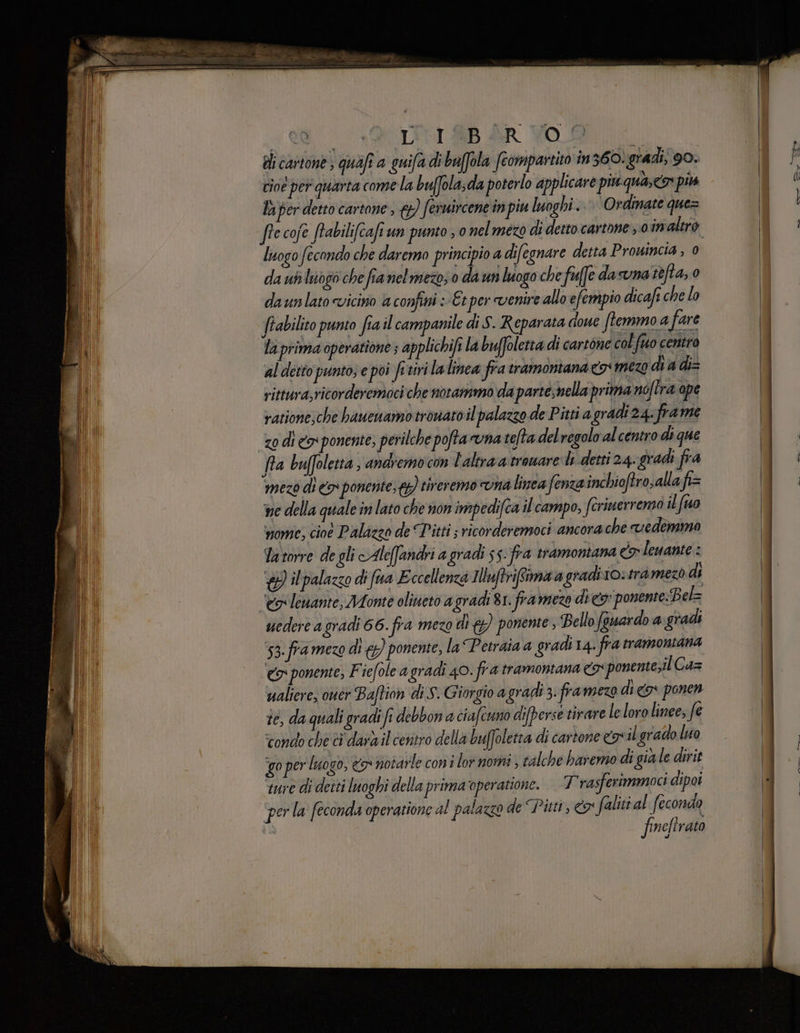 LIBRO
di cartone, quasi a guisa di bussola scompartito in 360. gradi, 90.
cioè per quarta come la bussola, da poterlo applicare più quà, & più
là per detto cartone, & seruircene in piu luoghi. Ordinate que=
ste cose stabiliscasi un punto, o nel mezo di detto cartone, o in altro
luogo secondo che daremo principio a disegnare detta Prouincia, o
da un luogo che sia nel mezo, o da un luogo che fusse da una testa, o
da un lato vicino a confini: Et per venire allo esempio dicasi che lo
stabilito punto sia il campanile di S. Reparata doue stemmo a fare
la prima operatione; applichisi la bussoletta di cartone col suo centro
al detto punto, e poi si tiri la linea fra tramontana & mezo dì a di=
rittura, ricorderemoci che notammo da parte, nella prima nostra ope
ratione, che haueuamo trouato il palazzo de Pitti a gradi 24. fra me
zo dì & ponente, perilche posta una testa del regolo al centro di que
sta bussoletta, andremo con l'altra a trouare li detti 24. gradi fra
mezo dì & ponente, & tireremo una linea senza inchiostro, alla fi=
ne della quale in lato che non impedisca il campo, scriuerremo il suo
nome, cioè Palazzo de Pitti; ricorderemoci ancora che vedemmo
la torre de gli Alessandri a gradi 55. fra tramontana & leuante:
& il palazzo di sua Eccellenza Illustrissima a gradi 10. tra mezo dì
& leuante, Monte oliueto a gradi 81. fra mezo dì & ponente. Bel=
uedere a gradi 66. fra mezo dì & ponente, Bello sguardo a gradi
53. fra mezo dì & ponente, la Petraia a gradi 14. fra tramontana
& ponente, Fiesole a gradi 40. fra tramontana & ponente, il Ca=
ualiere, ouer Bastion di S. Giorgio a gradi 3. fra mezo dì & ponen
te, da quali gradi si debbon a ciascuno disperse tirare le loro linee, se
condo che ci darà il centro della bussoletta di cartone & il grado luo
go per luogo, & notarle con i lor nomi, talche haremo di gia le dirit
ture di detti luoghi della prima operatione. Trasferimmoci dipoi
per la seconda operatione al palazzo de Pitti, & saliti al secondo
finestrato